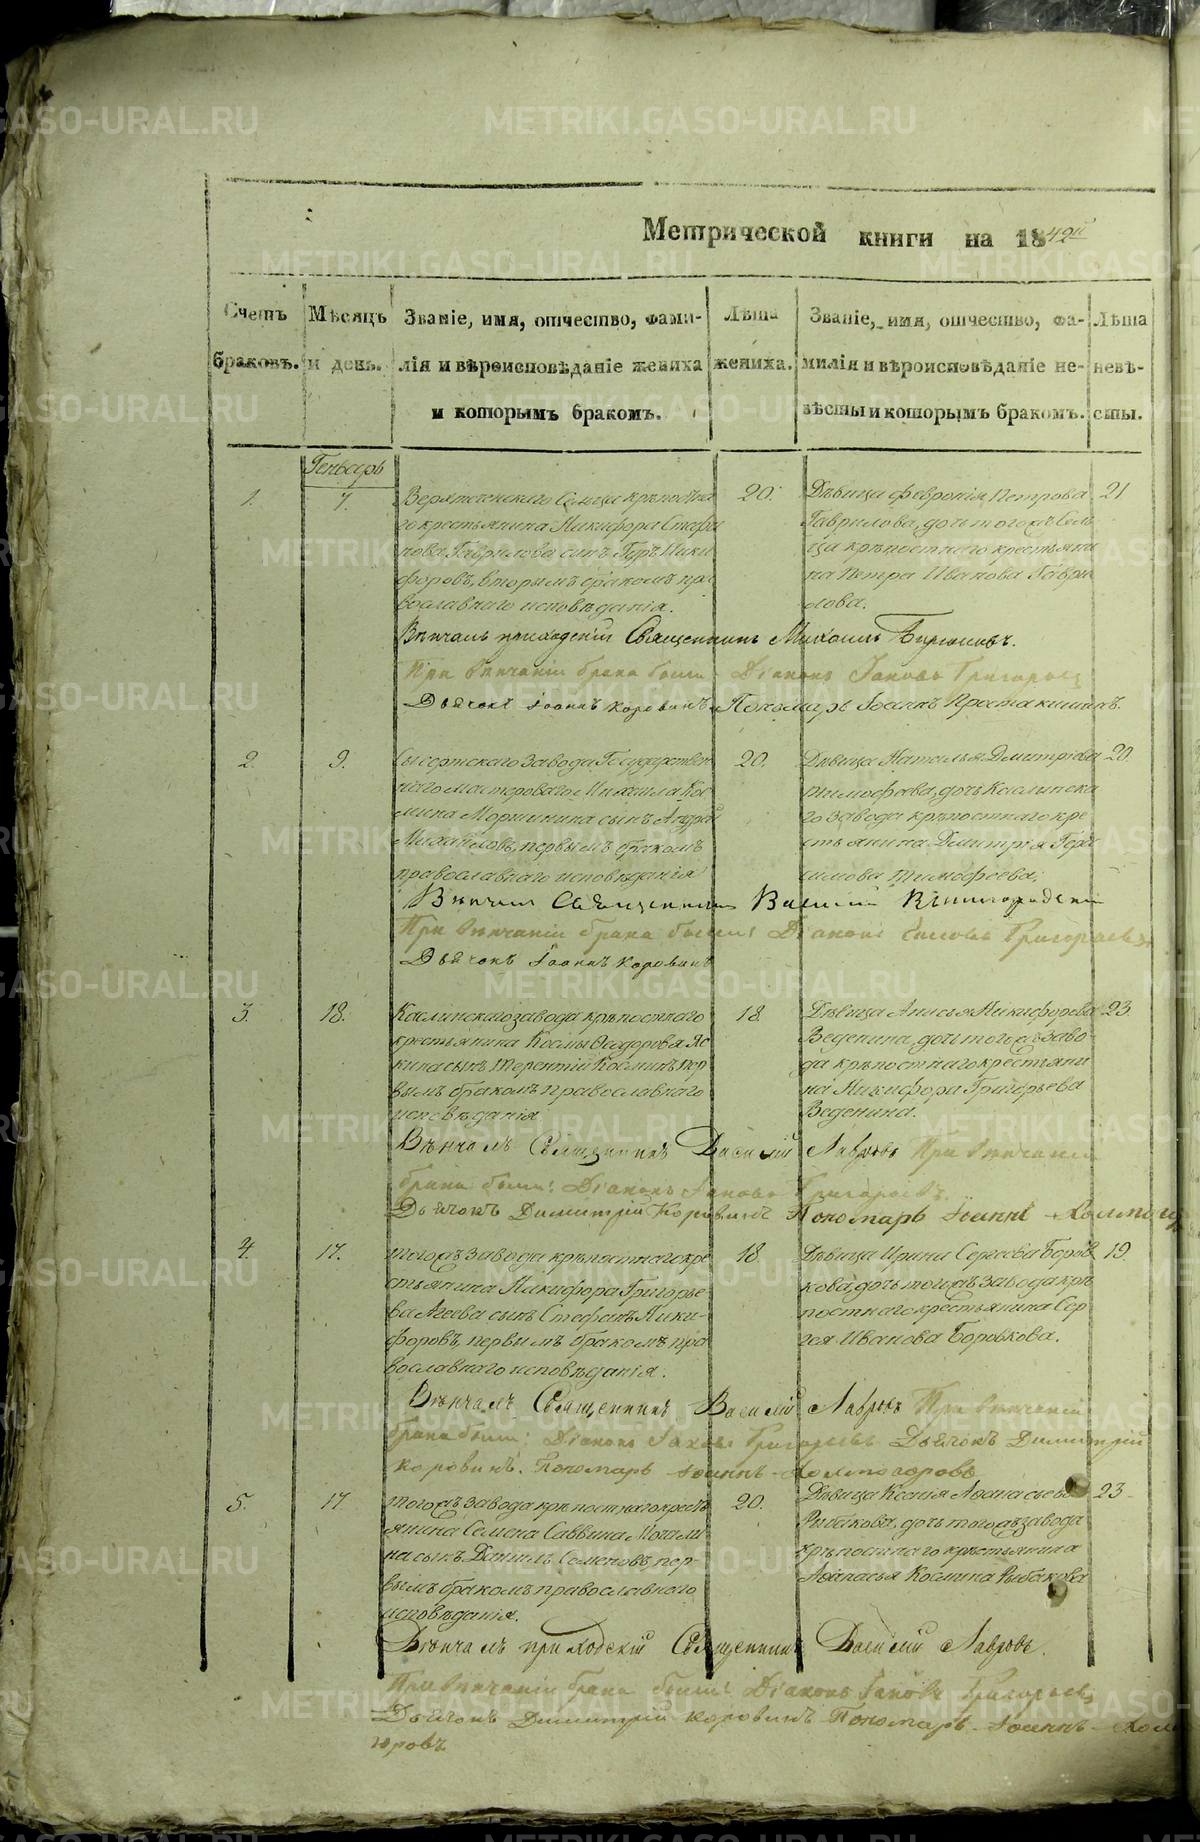 Метрической книги на 1842й
Счетъ браковъ.
Мѣсяцъ и день.
Званіе, имя, отчество, фами-
лія и вѣроисповѣданіе жениха
и которымъ бракомъ.
Лѣта жениха.
Званіе, имя, отчество, фа-
милія и вѣроисповѣданіе не-
вѣсты и которымъ бракомъ.
Лѣта невѣ-
сты.
Генварь
1.
7.
Сельца крѣпостна
го крестьянина Никифора Стафи
нова Гаврилова сынъ Гуръ Ники
форовъ, вторымъ бракомъ пра
вославнаго исповѣданія.
20.
Дѣвица Февронія Петрова
Гаврилова, дочь тогожъ Сель
ца крѣпостнаго крестьяни
на Петра Иванова Гаври
лова.
21
Вѣнчалъ Священникъ Михаилъ
При вѣнчаніи брака были: Діаконъ Іаковъ Григорьевъ
Дьячокъ Іоаннъ Коровинъ Пономарь Іоаннъ
2.
9.
Сысертскаго Завода Государствен
наго мастероваго Михаила Кос
мина сынъ Андрей
Михайловъ, первымъ бракомъ
православнаго исповѣданія
20.
Дѣвица Наталья Дмитріева
Тимофеева, дочь Каслинска
го Завода крѣпостнаго кре
стьянина Дмитрія Гера
симова Тимофеева.
20.
Вѣнчалъ Священникъ Василій
При вѣнчаніи брака были: Діаконъ Іаковъ Григорьевъ
Дьячокъ Іоаннъ Коровинъ
3.
18.
Каслинскаго завода крѣпостнаго
крестьянина Космы Ѳеодорова Яс
кина сынъ Терентій Косминъ пер
вымъ бракомъ православнаго
исповѣданія
18
Дѣвица Анисья Никифорова
Веденина, дочь тогожъ Заво-
да крѣпостнаго крестьяни
на Никифора Григорьева
Веденина.
23.
Вѣнчалъ Священникъ Василій Лавровъ При вѣнчаніи
брака были: Діаконъ Іаковъ Григорьевъ.
Дьячокъ Димитрій Коровинъ Пономарь Іоаннъ Холмогор
4.
17.
тогожъ Завода крѣпостнаго кре
стьянина Никифора Григорье
ва Агеева сынъ Стефанъ Ники-
форовъ, первымъ бракомъ пра
вославнаго исповѣданія.
18.
Дѣвица Ирина Сергеева Боров
кова, дочь тогожъ Завода крѣ
постнаго крестьянина Сер
гея Иванова Боровкова.
19.
Вѣнчалъ Священникъ Василій Лавровъ При вѣнчаніи
брака были: Діаконъ Іаковъ Григорьевъ Дьячокъ Димитрій
Коровинъ. Пономарь Іоаннъ Холмогоровъ
5.
17
тогожъ Завода крѣпостнаго кресть
янина Семена Саввина
на сынъ Даніилъ Семеновъ, пер-
вымъ бракомъ православнаго
исповѣданія.
20.
Дѣвица Ксенія Аѳанасьева
Рыбакова, дочь тогожъ завода
крѣпостнаго крестьянина
Аѳанасья Космина Рыбакова
23
Вѣнчалъ приходскій Священникъ Василій Лавровъ.
При вѣнчаніи брака были: Діаконъ Іаковъ Григорьевъ
Дьячокъ Димитрій Коровинъ Пономарь Іоаннъ Холмо
горовъ
METRIKI.GASO-URAL.RU